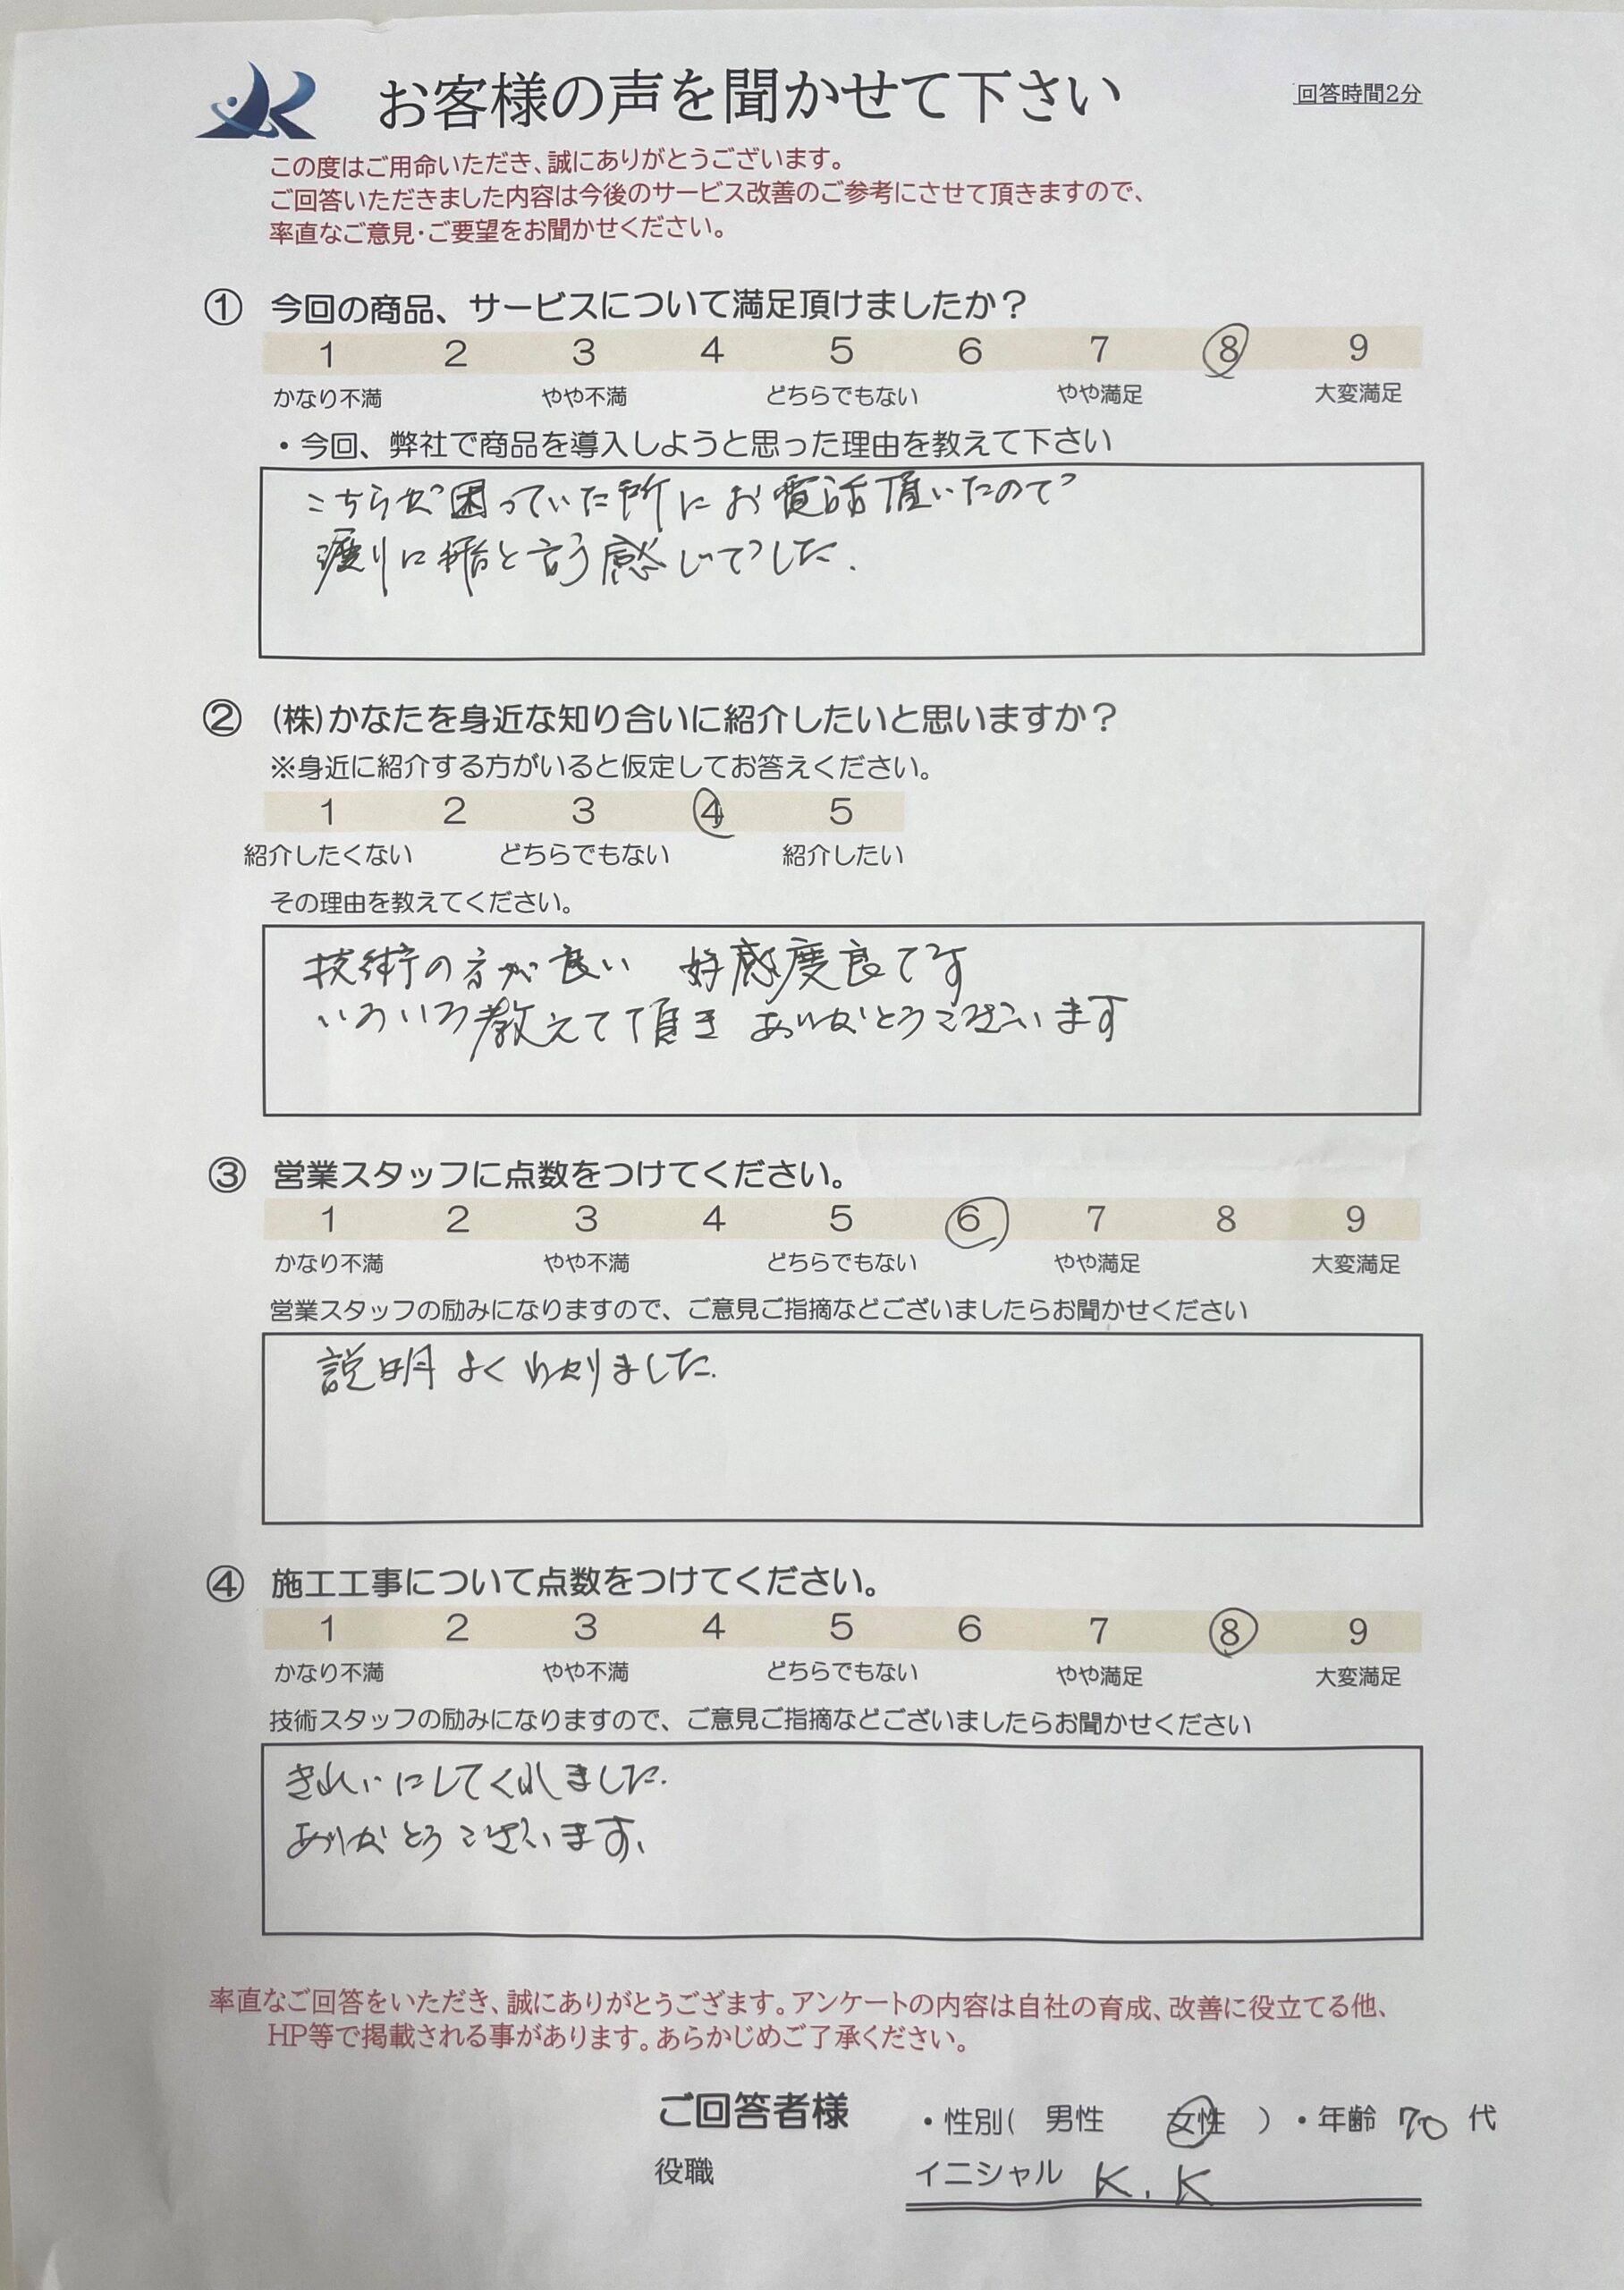 お客様の声を聞かせて下さい
回答時間2分
この度はご用命いただき、誠にありがとうございます。
ご回答いただきました内容は今後のサービス改善のご参考にさせて頂きますので、
率直なご意見・ご要望をお聞かせください。
① 今回の商品、サービスについて満足頂けましたか？
1 2 3 4 5 6 7 8 9
かなり不満 やや不満 どちらでもない やや満足 大変満足
・今回、弊社で商品を導入しようと思った理由を教えて下さい
こちらが困っていた所にお電話頂いたので
渡りに船と言う感じでした.
② (株)かなたを身近な知り合いに紹介したいと思いますか？
※身近に紹介する方がいると仮定してお答えください。
1 2 3 4 5
紹介したくない どちらでもない 紹介したい
その理由を教えてください。
技術の方が良い 好感度良てす
いろいろ教えて頂き ありがとうございます
③ 営業スタッフに点数をつけてください。
1 2 3 4 5 6 7 8 9
かなり不満 やや不満 どちらでもない やや満足 大変満足
営業スタッフの励みになりますので、ご意見ご指摘などございましたらお聞かせください
説明 よくわかりました.
④ 施工工事について点数をつけてください。
1 2 3 4 5 6 7 8 9
かなり不満 やや不満 どちらでもない やや満足 大変満足
技術スタッフの励みになりますので、ご意見ご指摘などございましたらお聞かせください
きれいにしてくれました.
ありがとうございます、
率直なご回答をいただき、誠にありがとうござます。アンケートの内容は自社の育成、改善に役立てる他、
HP等で掲載される事があります。あらかじめご了承ください。
ご回答者様 ・性別( 男性 女性 )・年齢 70 代
役職 イニシャル K.K